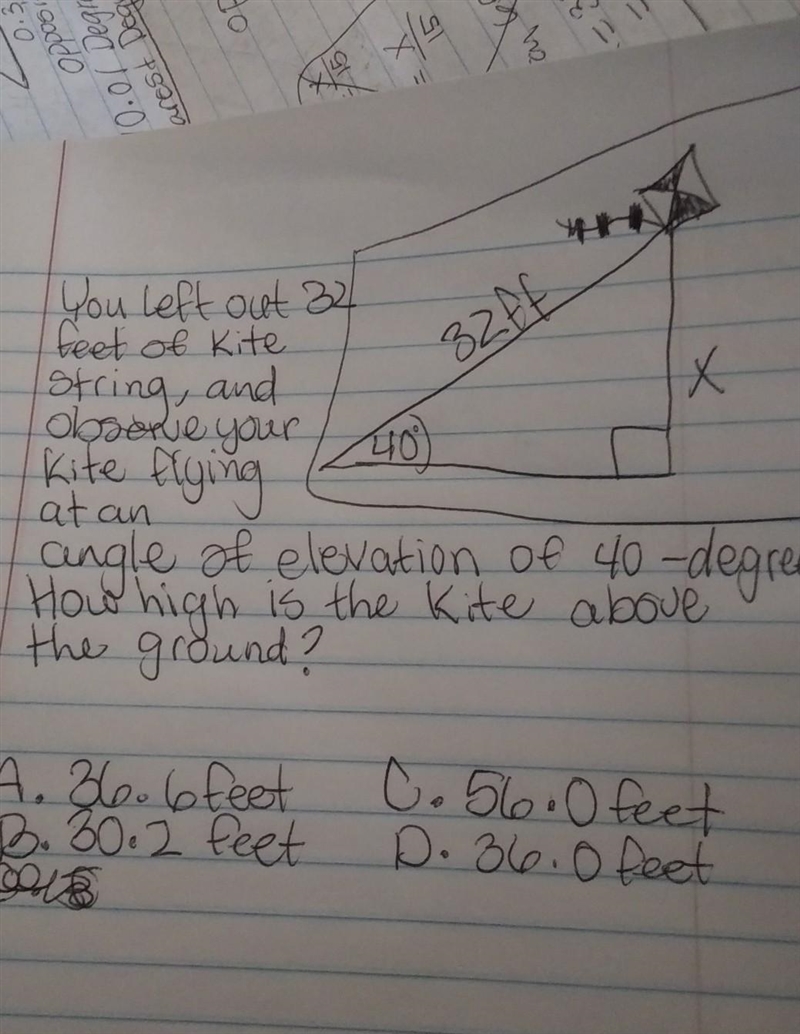 15
X
=
15
X
0.01 Degr
You left out 32
feet of Kite
string, and
observe your
Kite flying
at an
angle of elevation of 40-degre
How high is the Kite above
the ground?
32ft
X
40°
A. 36.6 feet
B. 30.2 feet
C. 56.0 feet
D. 36.0 feet